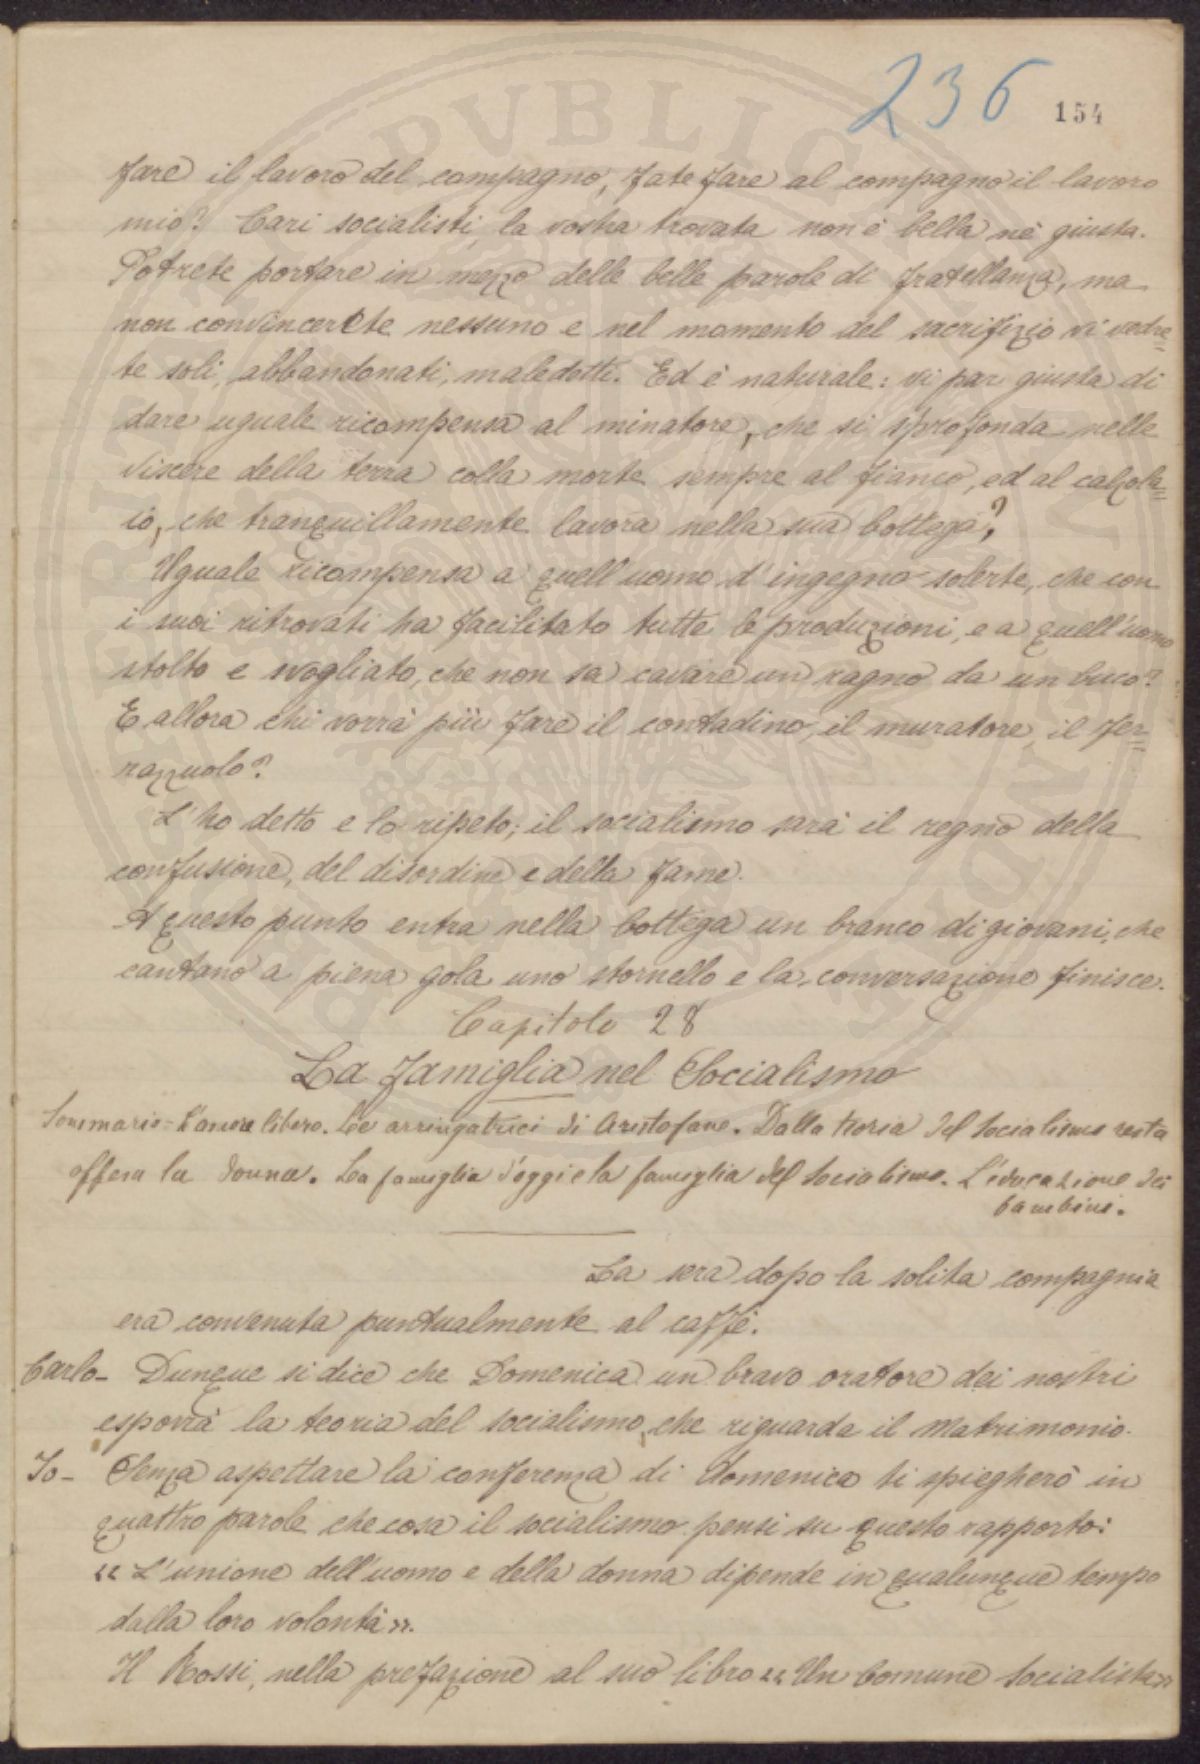 236
154
fare il lavoro del compagno, fate fare al compagno il lavoro
mio? Cari socialisti, la vostra trovata non è bella nè giusta.
Potrete portare in mezzo delle belle parole di fratellanza, ma
non convincerete nessuno e nel momento del sacrifizio vi vedre=
te soli, abbandonati, maledetti. Ed è naturale: vi par giusta di
dare uguale ricompensa al minatore, che si sprofonda nelle
viscere della terra colla morte sempre al fianco, ed al calzola=
io, che tranquillamente lavora nella sua bottega?
Uguale ricompensa a quell'uomo d'ingegno solerte, che con
i suoi ritrovati ha facilitato tutte le produzioni, e a quell'uomo
stolto e svogliato, che non sa cavare un ragno da un buco?
E allora chi vorrà più fare il contadino, il muratore, il fer=
razzuolo?
L'ho detto e lo ripeto; il socialismo sarà il regno della
confusione, del disordine e della fame.
A questo punto entra nella bottega un branco di giovani, che
cantano a piena gola uno stornello e la conversazione finisce.
Capitolo 28
La famiglia nel Socialismo
Sommario = L'amore libero. Le arringatrici di Aristofane. Dalla teoria del socialismo resta
offesa la donna. La famiglia d'oggi e la famiglia del Socialismo. L'educazione dei
bambini.
La sera dopo la solita compagnia
era convenuta puntualmente al caffè.
Carlo- Dunque si dice che Domenica un bravo oratore dei nostri
esporrà la teoria del socialismo, che riguarda il Matrimonio.
Io- Senza aspettare la conferenza di Domenica ti spiegherò in
quattro parole che cosa il socialismo pensi su questo rapporto:
« L'unione dell'uomo e della donna dipende in qualunque tempo
dalla loro volontà ».
Il Rossi, nella prefazione al suo libro « Un Comune Socialista »